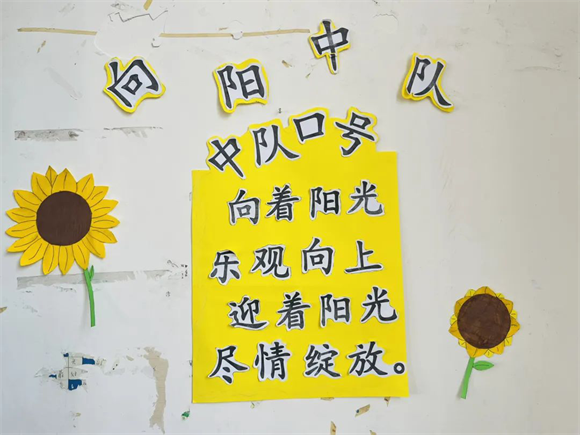 向阳中队
中队口号
向着阳光
乐观向上
迎着阳光
尽情绽放。